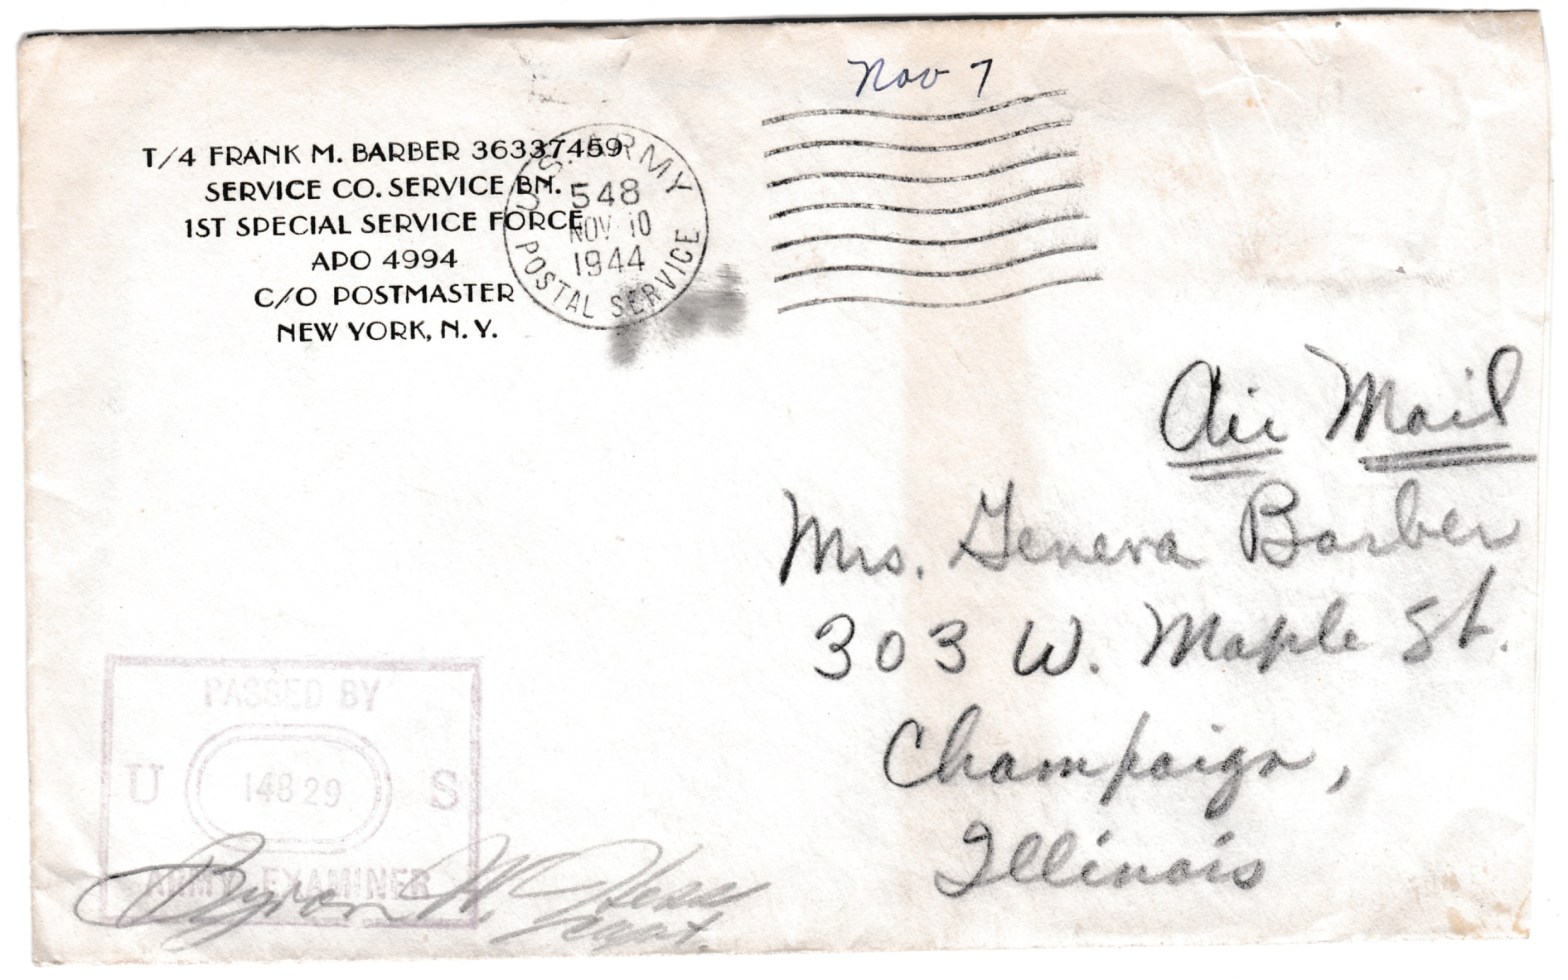 Nov 7
T/4 FRANK M. BARBER 36337459
SERVICE CO. SERVICE BN.
1ST SPECIAL SERVICE FORCE
APO 4994
C/O POSTMASTER
NEW YORK, N. Y.
U.S. ARMY
548
NOV 10
1944
POSTAL SERVICE
Air Mail
Mrs. Geneva Barber
303 W. Maple St.
Champaign,
Illinois
PASSED BY
U 14829 S
ARMY EXAMINER
Byron W. Hess
Capt.